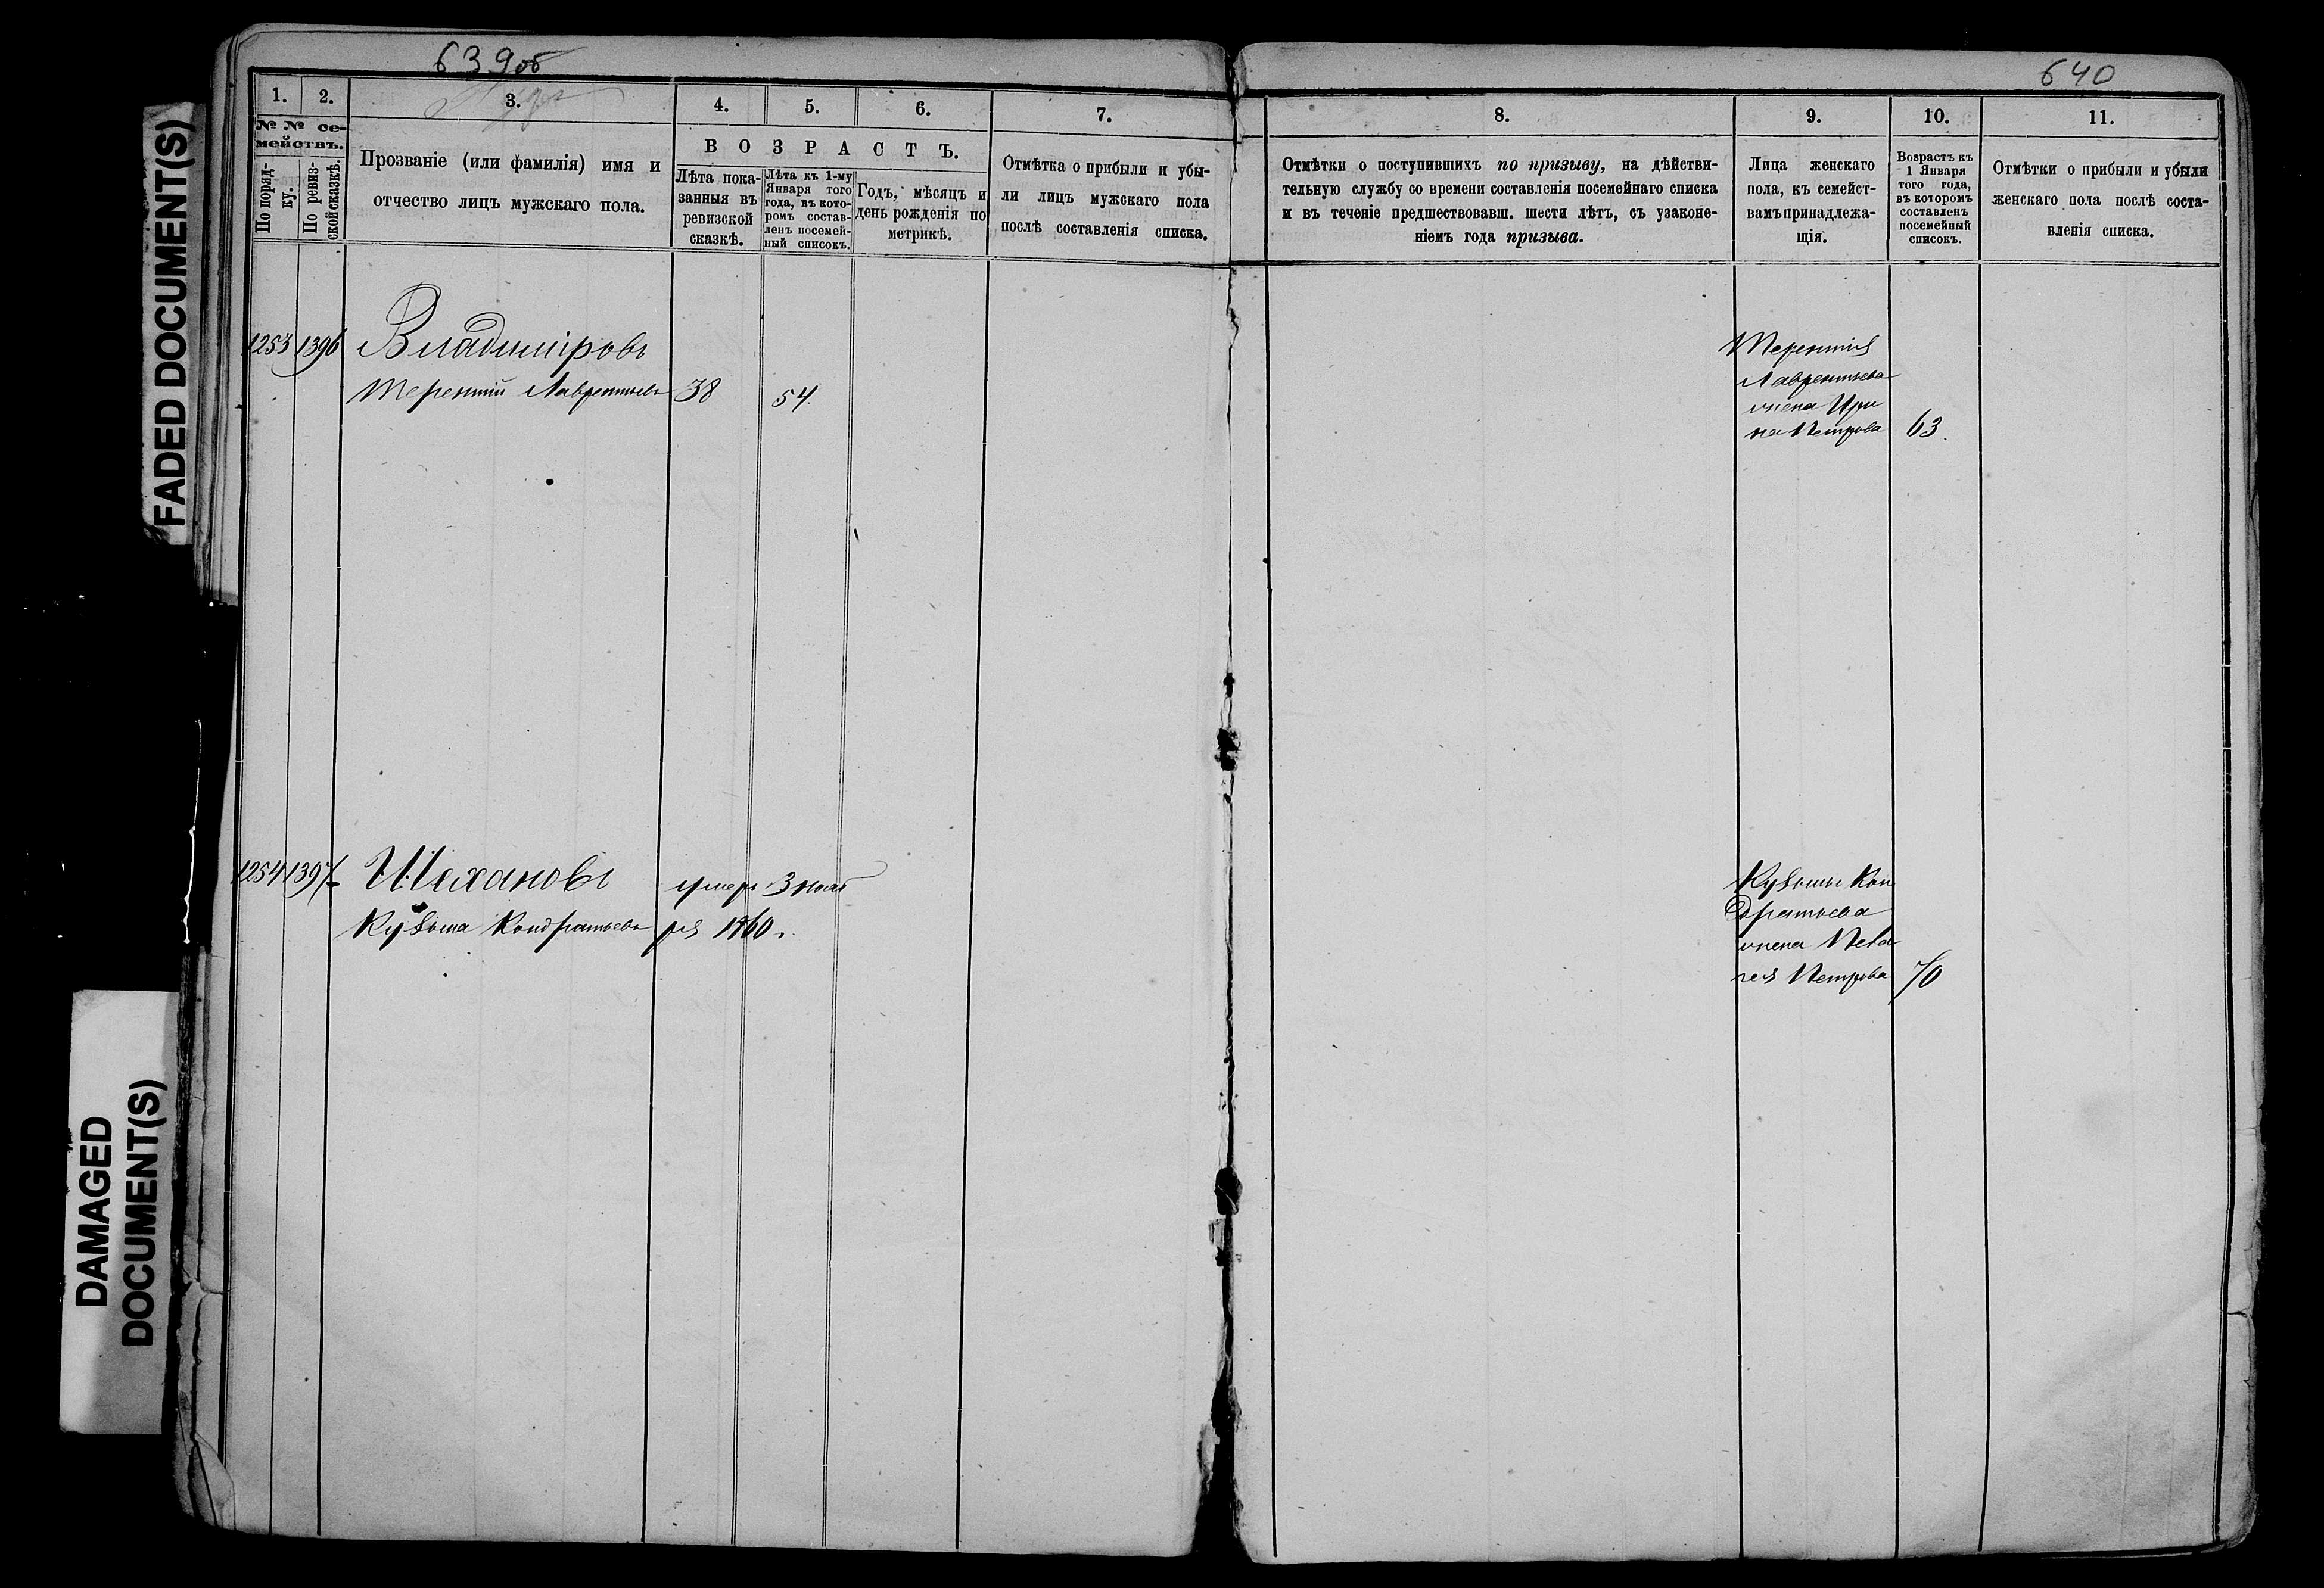 639об
640
FADED DOCUMENT(S)
DAMAGED
DOCUMENT(S)
1. 2. 3. 4. 5. 6. 7.
№ № се-
мействъ.
По поряд-
ку.
По ревиз-
ской сказкѣ.
Прозваніе (или фамилія) имя и
отчество лицъ мужскаго пола.
ВОЗРАСТЪ.
Лѣта пока-
занныя въ
ревизской
сказкѣ.
Лѣта къ 1-му
Января того
года, въ кото-
ромъ состав-
ленъ посемей-
ный списокъ.
Годъ, мѣсяцъ и
день рожденія по
метрикѣ.
Отмѣтка о прибыли и убы-
ли лицъ мужскаго пола
послѣ составленія списка.
8. 9. 10. 11.
Отмѣтки о поступившихъ по призыву, на дѣйстви-
тельную службу со времени составленія посемейнаго списка
и въ теченіе предшествовавш. шести лѣтъ, съ узаконе-
ніемъ года призыва.
Лица женскаго
пола, къ семейст-
вамъ принадлежа-
щія.
Возрастъ къ
1 Января
того года,
въ которомъ
составленъ
посемейный
списокъ.
Отмѣтки о прибыли и убыли
женскаго пола послѣ соста-
вленія списка.
1253 1396 Владиміровъ
Терентій Лаврентьевъ 38 54.
Терентія
Лаврентьева
жена Ири
на Петрова 63.
1254 1397 Шехановъ
умеръ 3 нояб
Кузьма Кондратьевъ ря 1860.
Кузьмы Кон
дратьева
жена Пела
гея Петрова 70